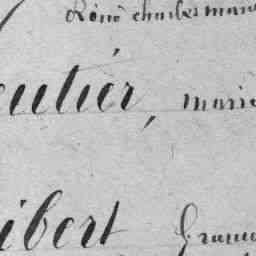 Réné charles mari
eutier, marie
ibert